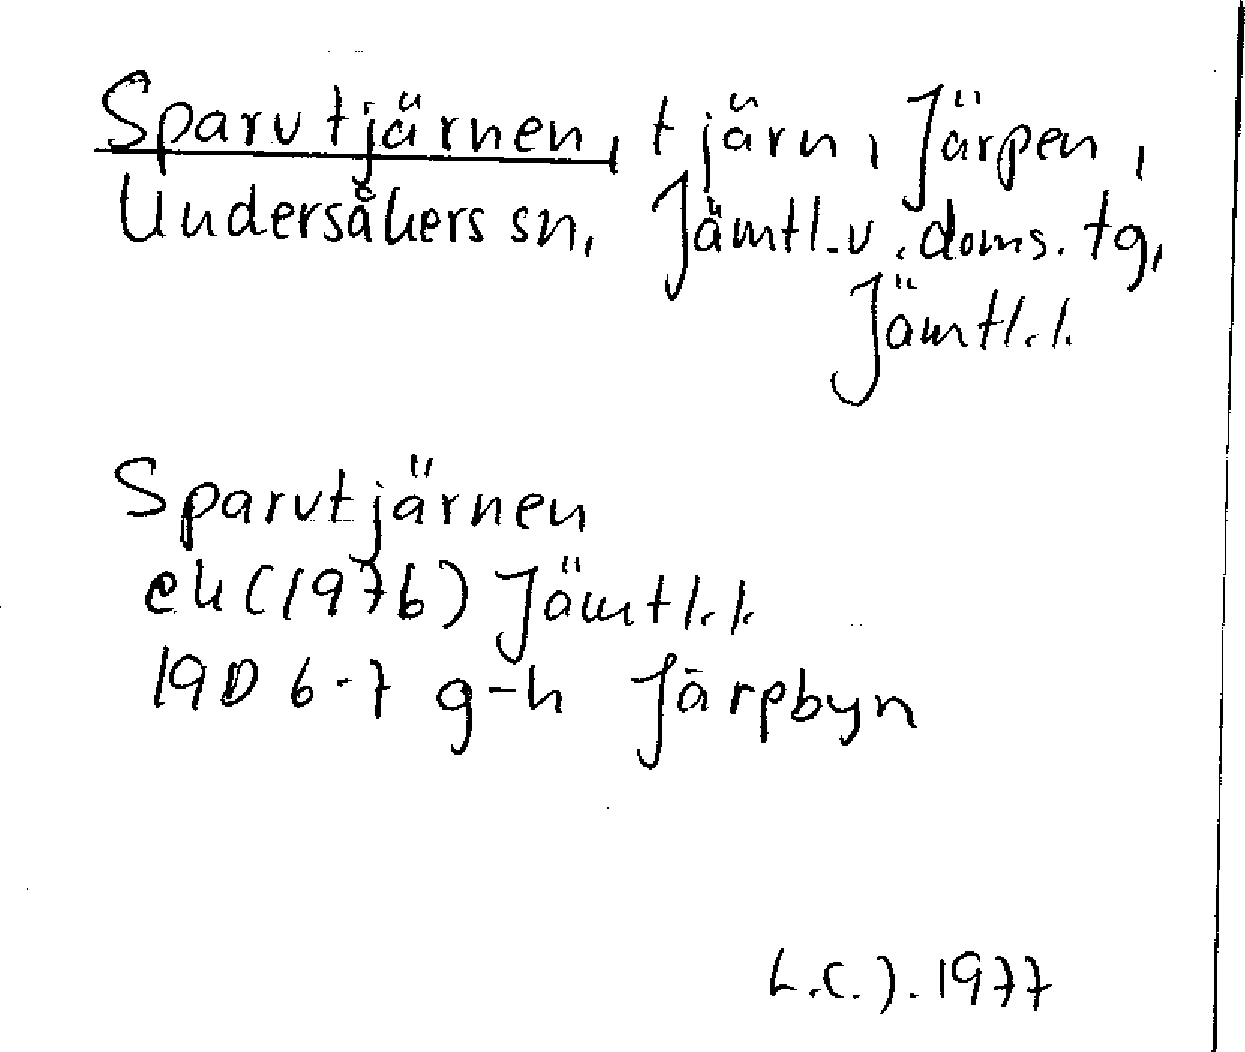 Sparvtjärnen, tjärn, Järpen,
Undersåkers sn, Jämtl.v.doms.tg,
Jämtl.l.
Sparvtjärnen
ek (1976) Jämtl.l.
19D 6-7 g-h Järpbyn
L.C.J. 1977